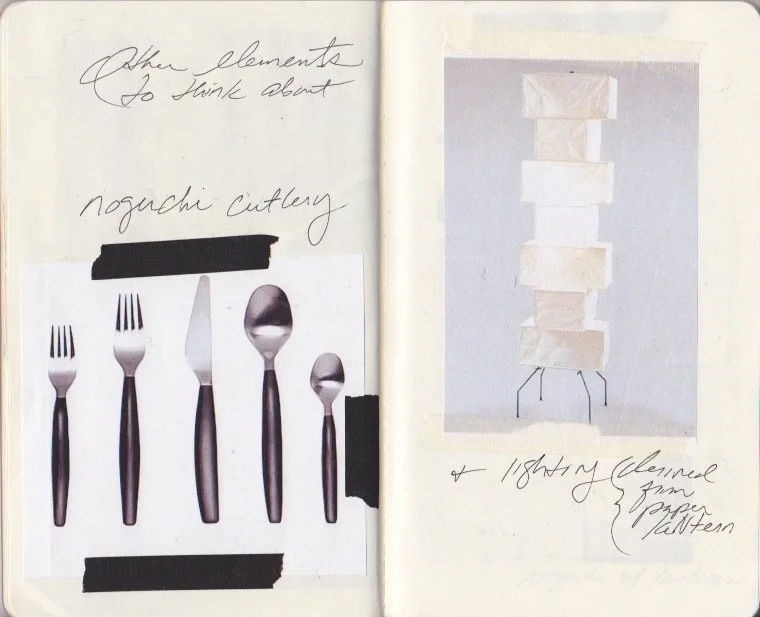 Other elements
to think about
noguchi cutlery
+ lighting (derived
from
paper
lantern